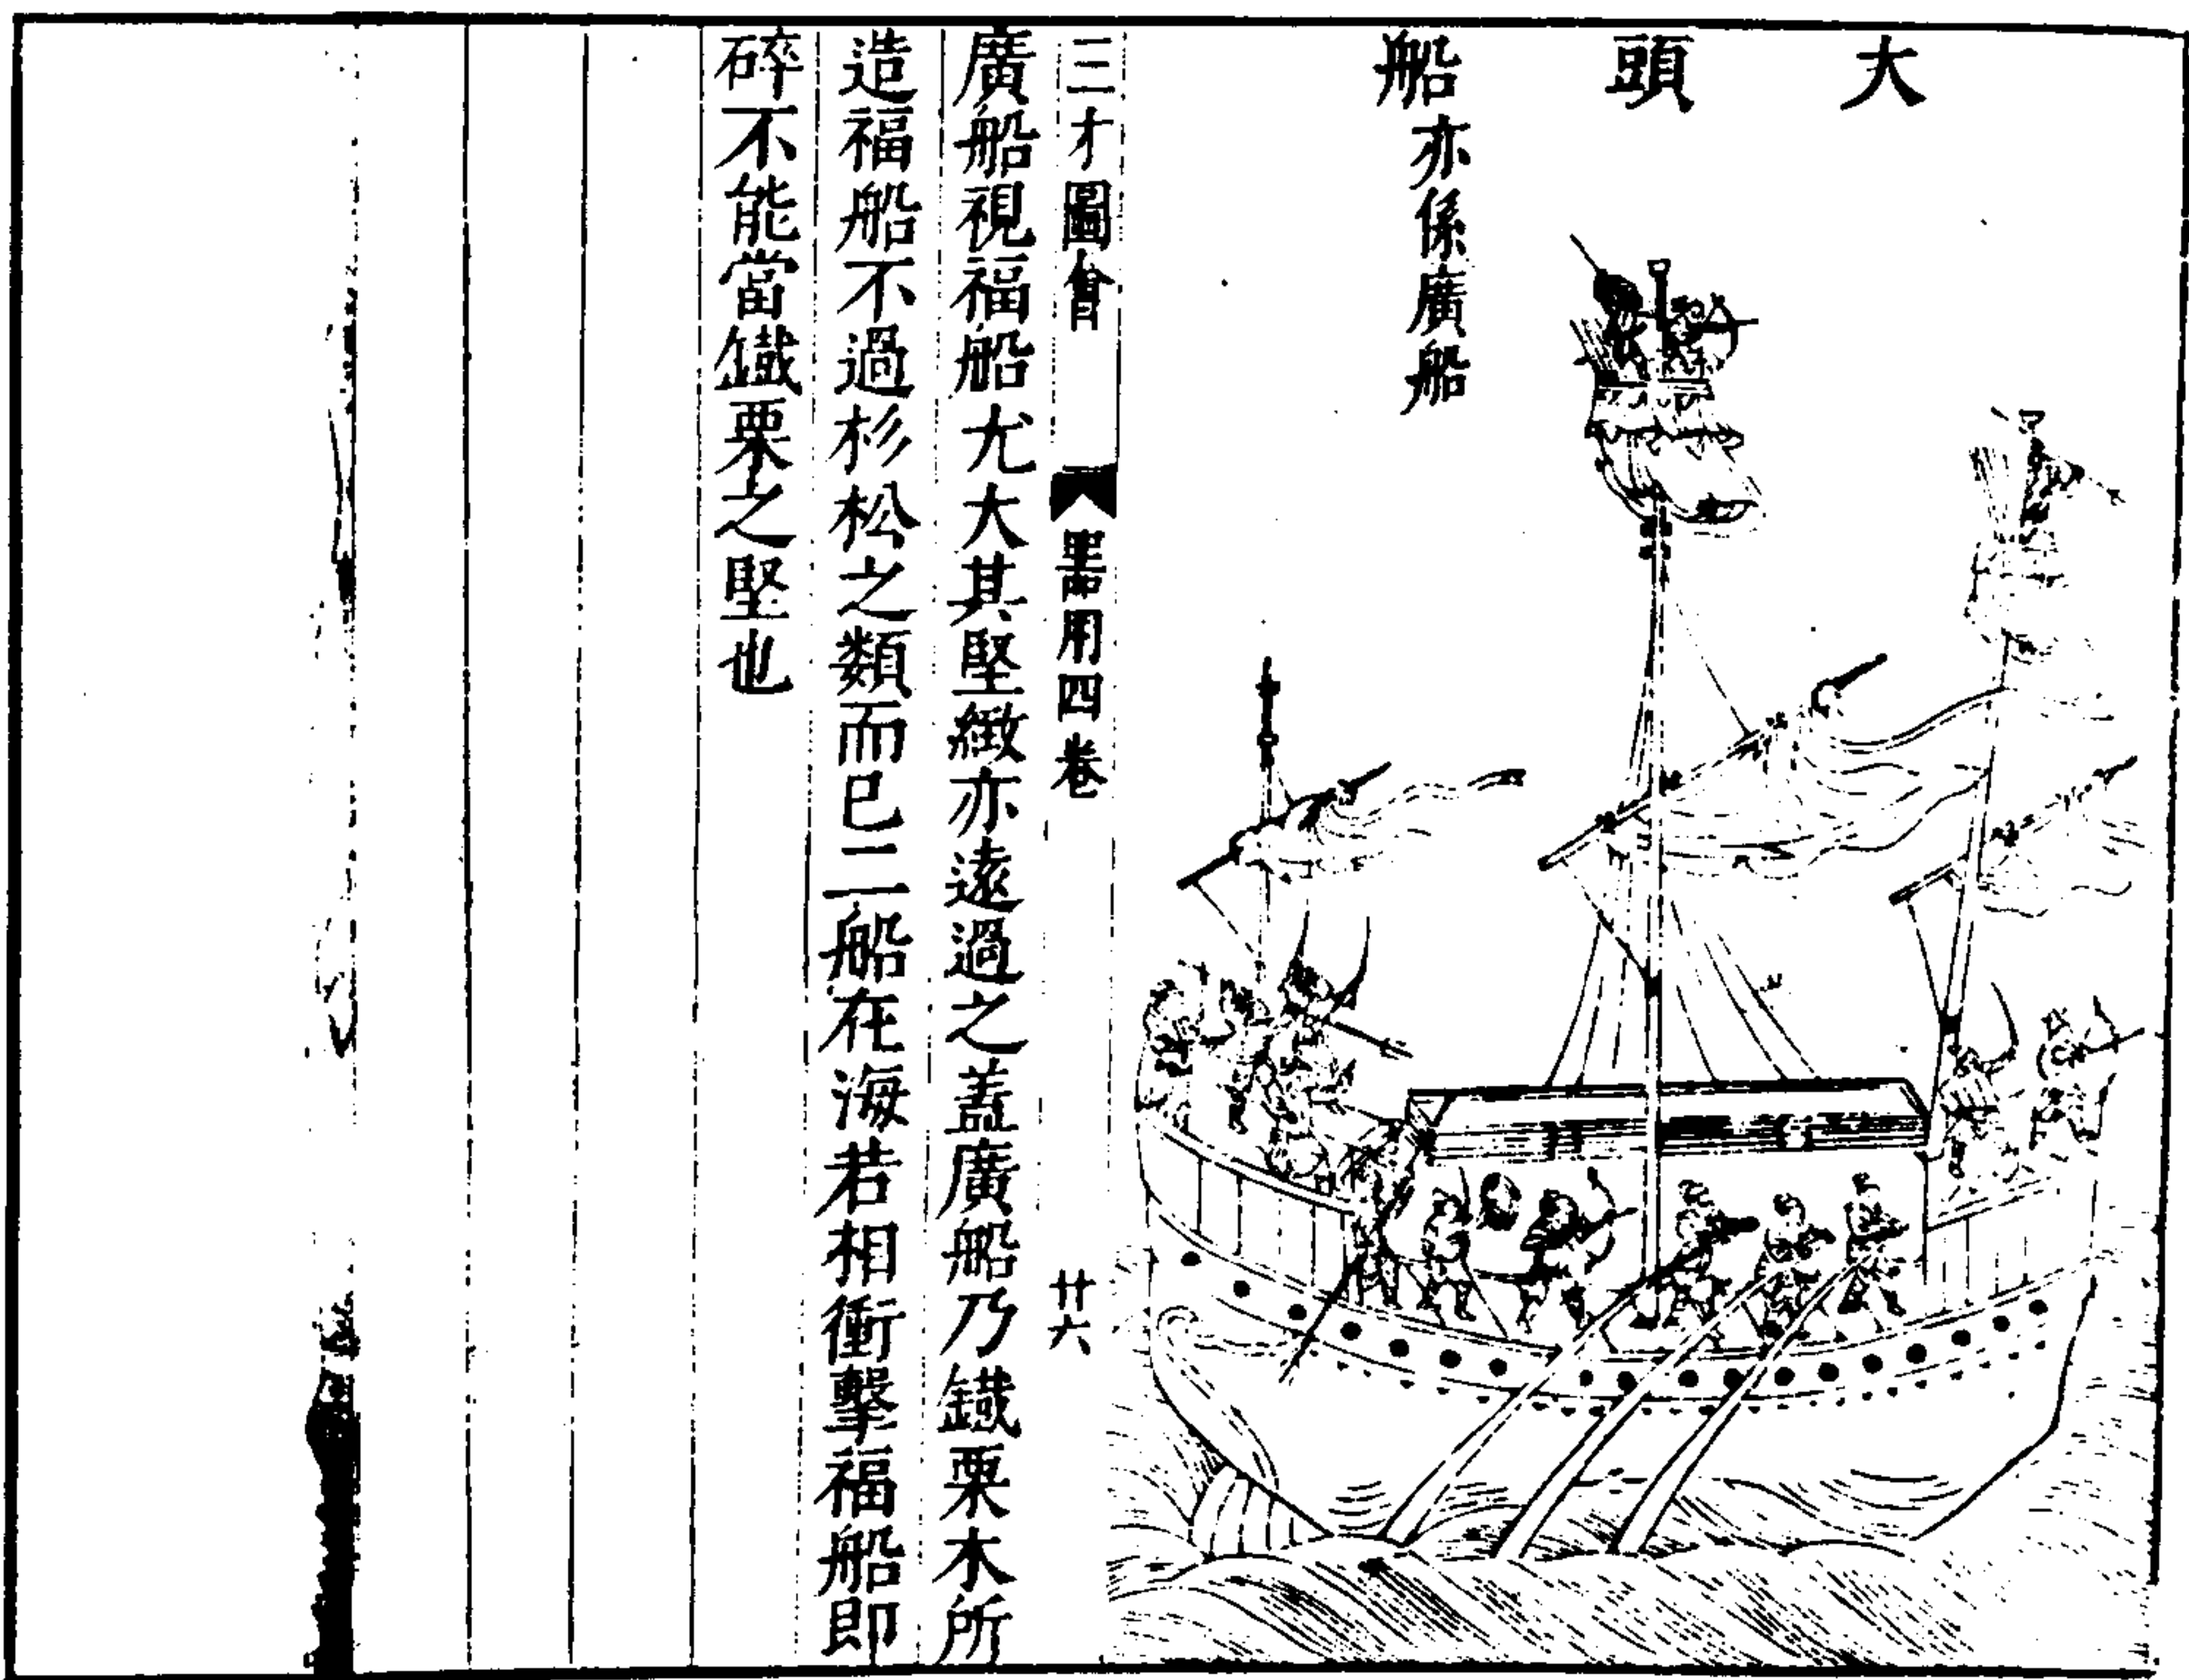 大頭船
亦係廣船
三才圖會 器用四卷 廿六
廣船視福船尤大其堅緻亦遠過之蓋廣船乃鐵栗木所
造福船不過杉松之類而已二船在海若相衝擊福船即
碎不能當鐵栗之堅也